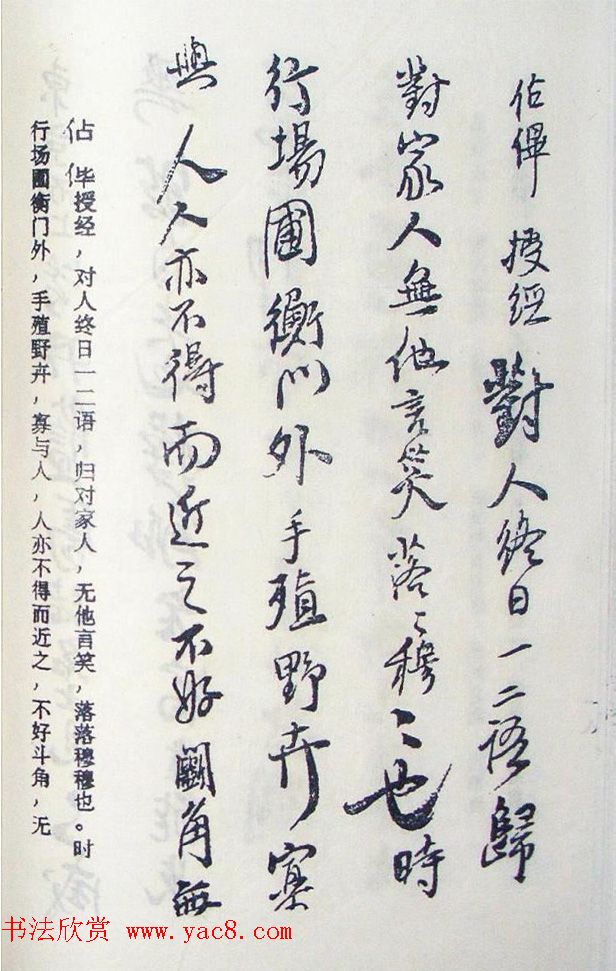 佔俾授經對人終日一二語歸
對家人無他言笑落〻穆〻也時
行場圃衡門外手殖野卉寡
與人人亦不得而近之不好鬭角無
佔伴授经，对人终日一二语，归对家人，无他言笑，落落穆穆也。时
行场圃衡门外，手殖野卉，寡与人，人亦不得而近之，不好斗角，无
书法欣赏 www.yac8.com